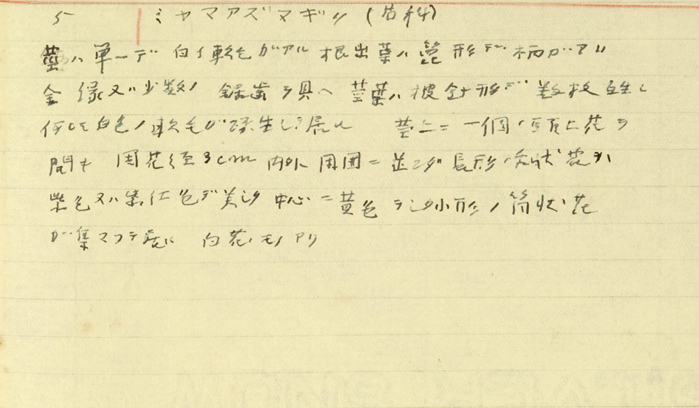 5 ミヤマアズマギク (菊科)
茎ハ単一デ白イ軟毛ガアル 根出葉ハ箆形デ柄ガアリ
全縁又ハ少数ノ鋸歯ヲ具ヘ 茎葉ハ披針形デ数枚互生シ
何レモ白色ノ軟毛ガ 茎上ニ一個ノ頭上花ヲ
開キ 周花径3cm内外 周囲ニ並ブ長形ノ舌状花ハ
紫色又ハ紫紅色デ美シク 中心ニ黄色ヲシタ小形ノ筒状花
ガ集マツテ 白花ノモノアリ